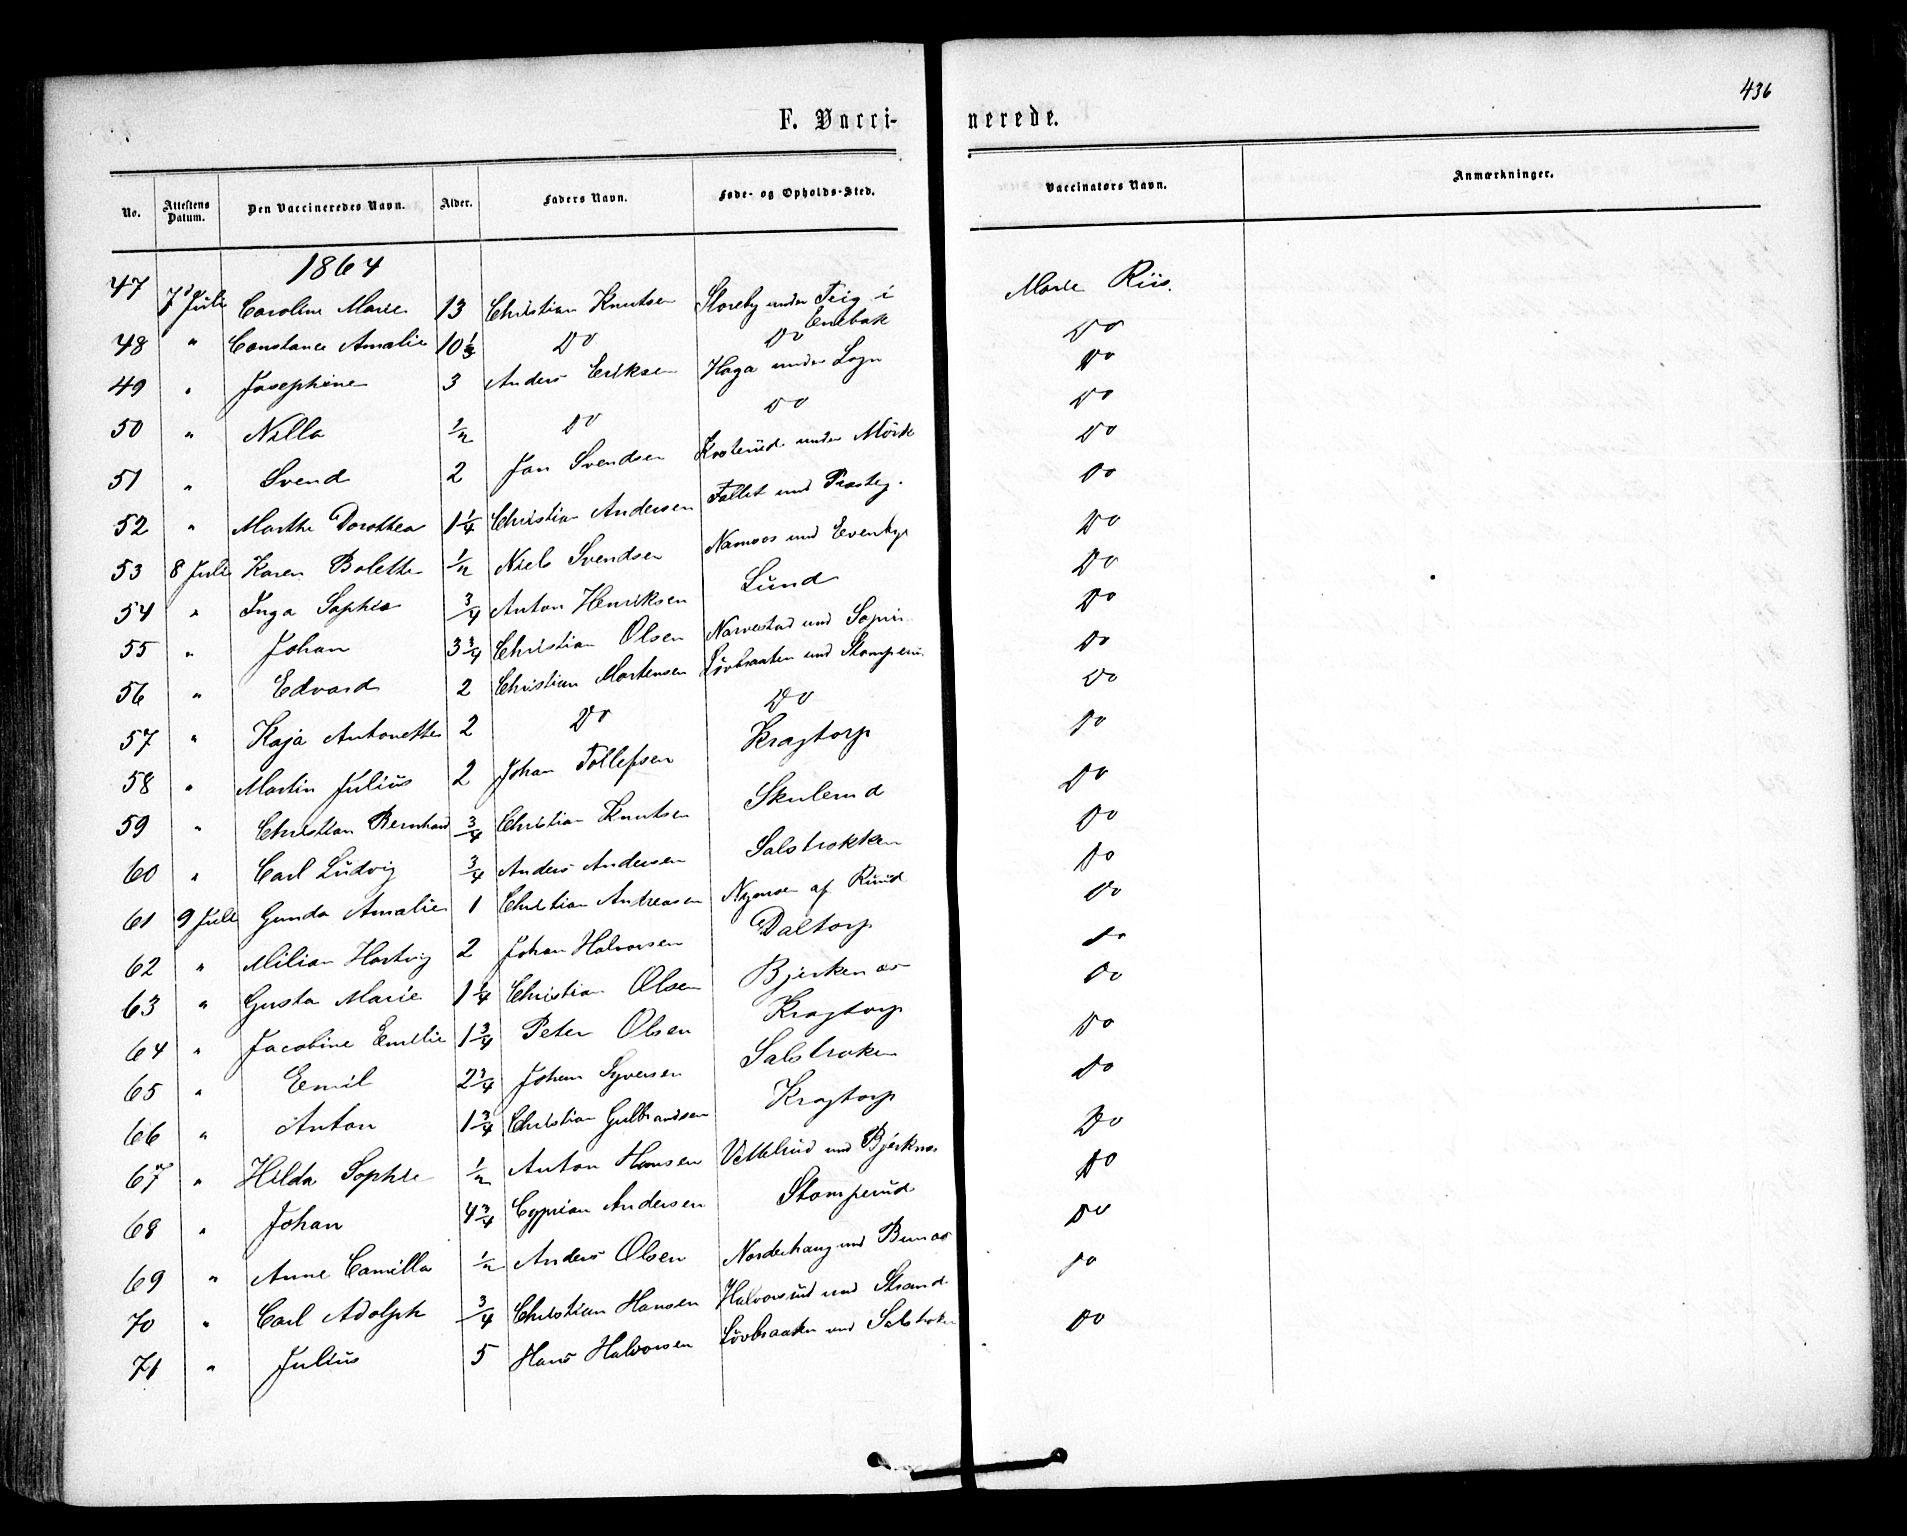 436
F. Vacci- nerede.
No. Attestens Datum. Den Vaccineredes Navn. Alder. Faders Navn. Føde- og Opholds-Sted. Vaccinators Navn. Anmærkninger.
1864
47 7 Juli Caroline Marie 13 Christian Knutsen Storeby under Teig i Enebak Marie Riis.
48 " Constance Amalie 10 1/2 Do Do Do
49 " Josephine 3 Anders Eriksen Haga under Do
50 " Nilla 1/2 Do Do Do
51 " Svend 2 Jan Svendsen under Mörk Do
52 " Marthe Dorothea 1 1/4 Christian Andersen Fallet und Præsteg. Do
53 8 Juli Karen Bolette 1/2 Niels Svendsen und Do
54 " Inga Sophie 3/4 Anton Henriksen Lund Do
55 " Johan 3 3/4 Christian Olsen Narvestad und Do
56 " Edvard 2 Christian Mortensen und Stomperud Do
57 " Kaja Antonette 2 Do Do Do
58 " Martin Julius 2 Johan Tollefsen Kragtorp Do
59 " Christian Bernhard 3/4 Christian Knutsen Skulerud Do
60 " Carl Ludvig 3/4 Anders Andersen Salstrokken Do
61 9 Juli Gunda Amalie 1 Christian Andreasen af Ruud Do
62 " Milian Hartvig 2 Johan Halvorsen Daltorp Do
63 " Gusta Marie 1 1/4 Christian Olsen Bjerkenæs Do
64 " Jacobine Emelie 1 3/4 Peter Olsen Kragtorp Do
65 " Emil 2 3/4 Johan Syversen Salstroken Do
66 " Anton 1 3/4 Christian Gulbrandsen Kragtorp Do
67 " Hilda Sophie 1/2 Anton Hansen Vettelrud und Bjerknæs Do
68 " Johan 4 3/4 Cyprian Andersen Stomperud Do
69 " Anne Camilla 1/2 Anders Olsen Norderhaug und Bunæs Do
70 " Carl Adolph 3/4 Christian Hansen Halvorsrud und Strand Do
71 " Julius 5 Hans Halvorsen und Salstroken Do